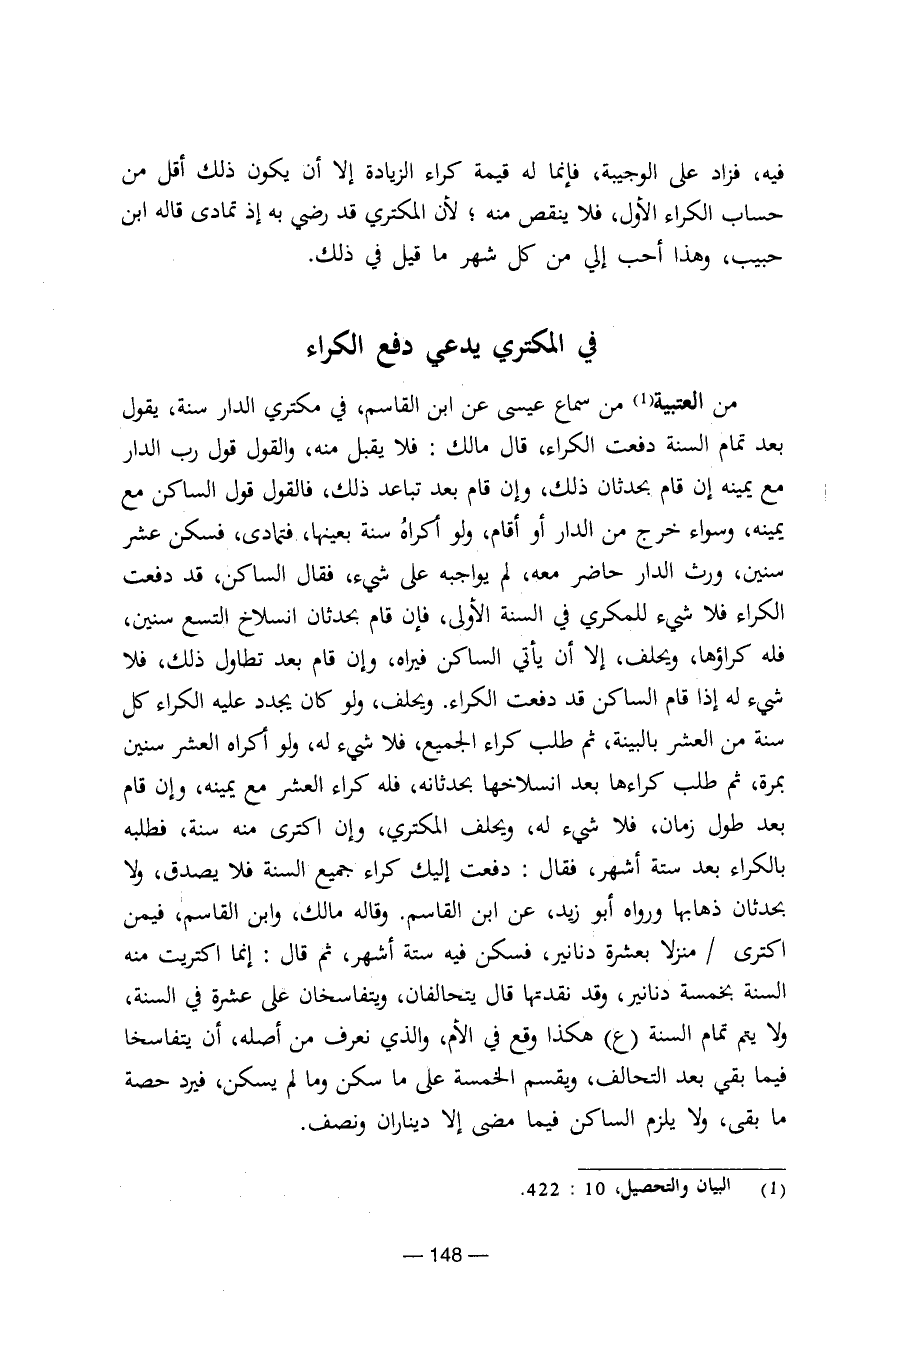 فيه، فزاد على الوجيبة، فإنما له قيمة كراء الزيادة إلا أن يكون ذلك أقل من
حساب الكراء الأول، فلا ينقص منه ؛ لأن المكتري قد رضي به إذ تمادى قاله ابن
حبيب، وهذا أحب إلي من كل شهر ما قيل في ذلك.
في المكتري يدعي دفع الكراء
من العتبية(1) من سماع عيسى عن ابن القاسم، في مكتري الدار سنة، يقول
بعد تمام السنة دفعت الكراء، قال مالك : فلا يقبل منه، والقول قول رب الدار
مع يمينه إن قام بحدثان ذلك، وإن قام بعد تباعد ذلك، فالقول قول الساكن مع
يمينه، وسواء خرج من الدار أو أقام، ولو أكراهُ سنة بعينها، فتمادى، فسكن عشر
سنين، ورث الدار حاضر معه، لم يواجبه على شيء، فقال الساكن، قد دفعت
الكراء فلا شيء للمكري في السنة الأولى، فإن قام بحدثان انسلاخ التسع سنين،
فله كراؤها، ويحلف، إلا أن يأتي الساكن فيراه، وإن قام بعد تطاول ذلك، فلا
شيء له إذا قام الساكن قد دفعت الكراء. ويحلف، ولو كان يجدد عليه الكراء كل
سنة من العشر بالبينة، ثم طلب كراء الجميع، فلا شيء له، ولو أكراه العشر سنين
بمرة، ثم طلب كراءها بعد انسلاخها بحدثانه، فله كراء العشر مع يمينه، وإن قام
بعد طول زمان، فلا شيء له، ويحلف المكتري، وإن اكترى منه سنة، فطلبه
بالكراء بعد ستة أشهر، فقال : دفعت إليك كراء جميع السنة فلا يصدق، ولا
بحدثان ذهابها ورواه أبو زيد، عن ابن القاسم. وقاله مالك، وابن القاسم، فيمن
اكترى / منزلا بعشرة دنانير، فسكن فيه ستة أشهر، ثم قال : إنما اكتريت منه
السنة بخمسة دنانير، وقد نقدتها قال يتحالفان، ويتفاسخان على عشرة في السنة،
ولا يتم تمام السنة (ع) هكذا وقع في الأم، والذي نعرف من أصله، أن يتفاسخا
فيما بقي بعد التحالف، ويقسم الخمسة على ما سكن وما لم يسكن، فيرد حصة
ما بقى، ولا يلزم الساكن فيما مضى إلا ديناران ونصف.
(1) البيان والتحصيل، 10 : 422.
— 148 —